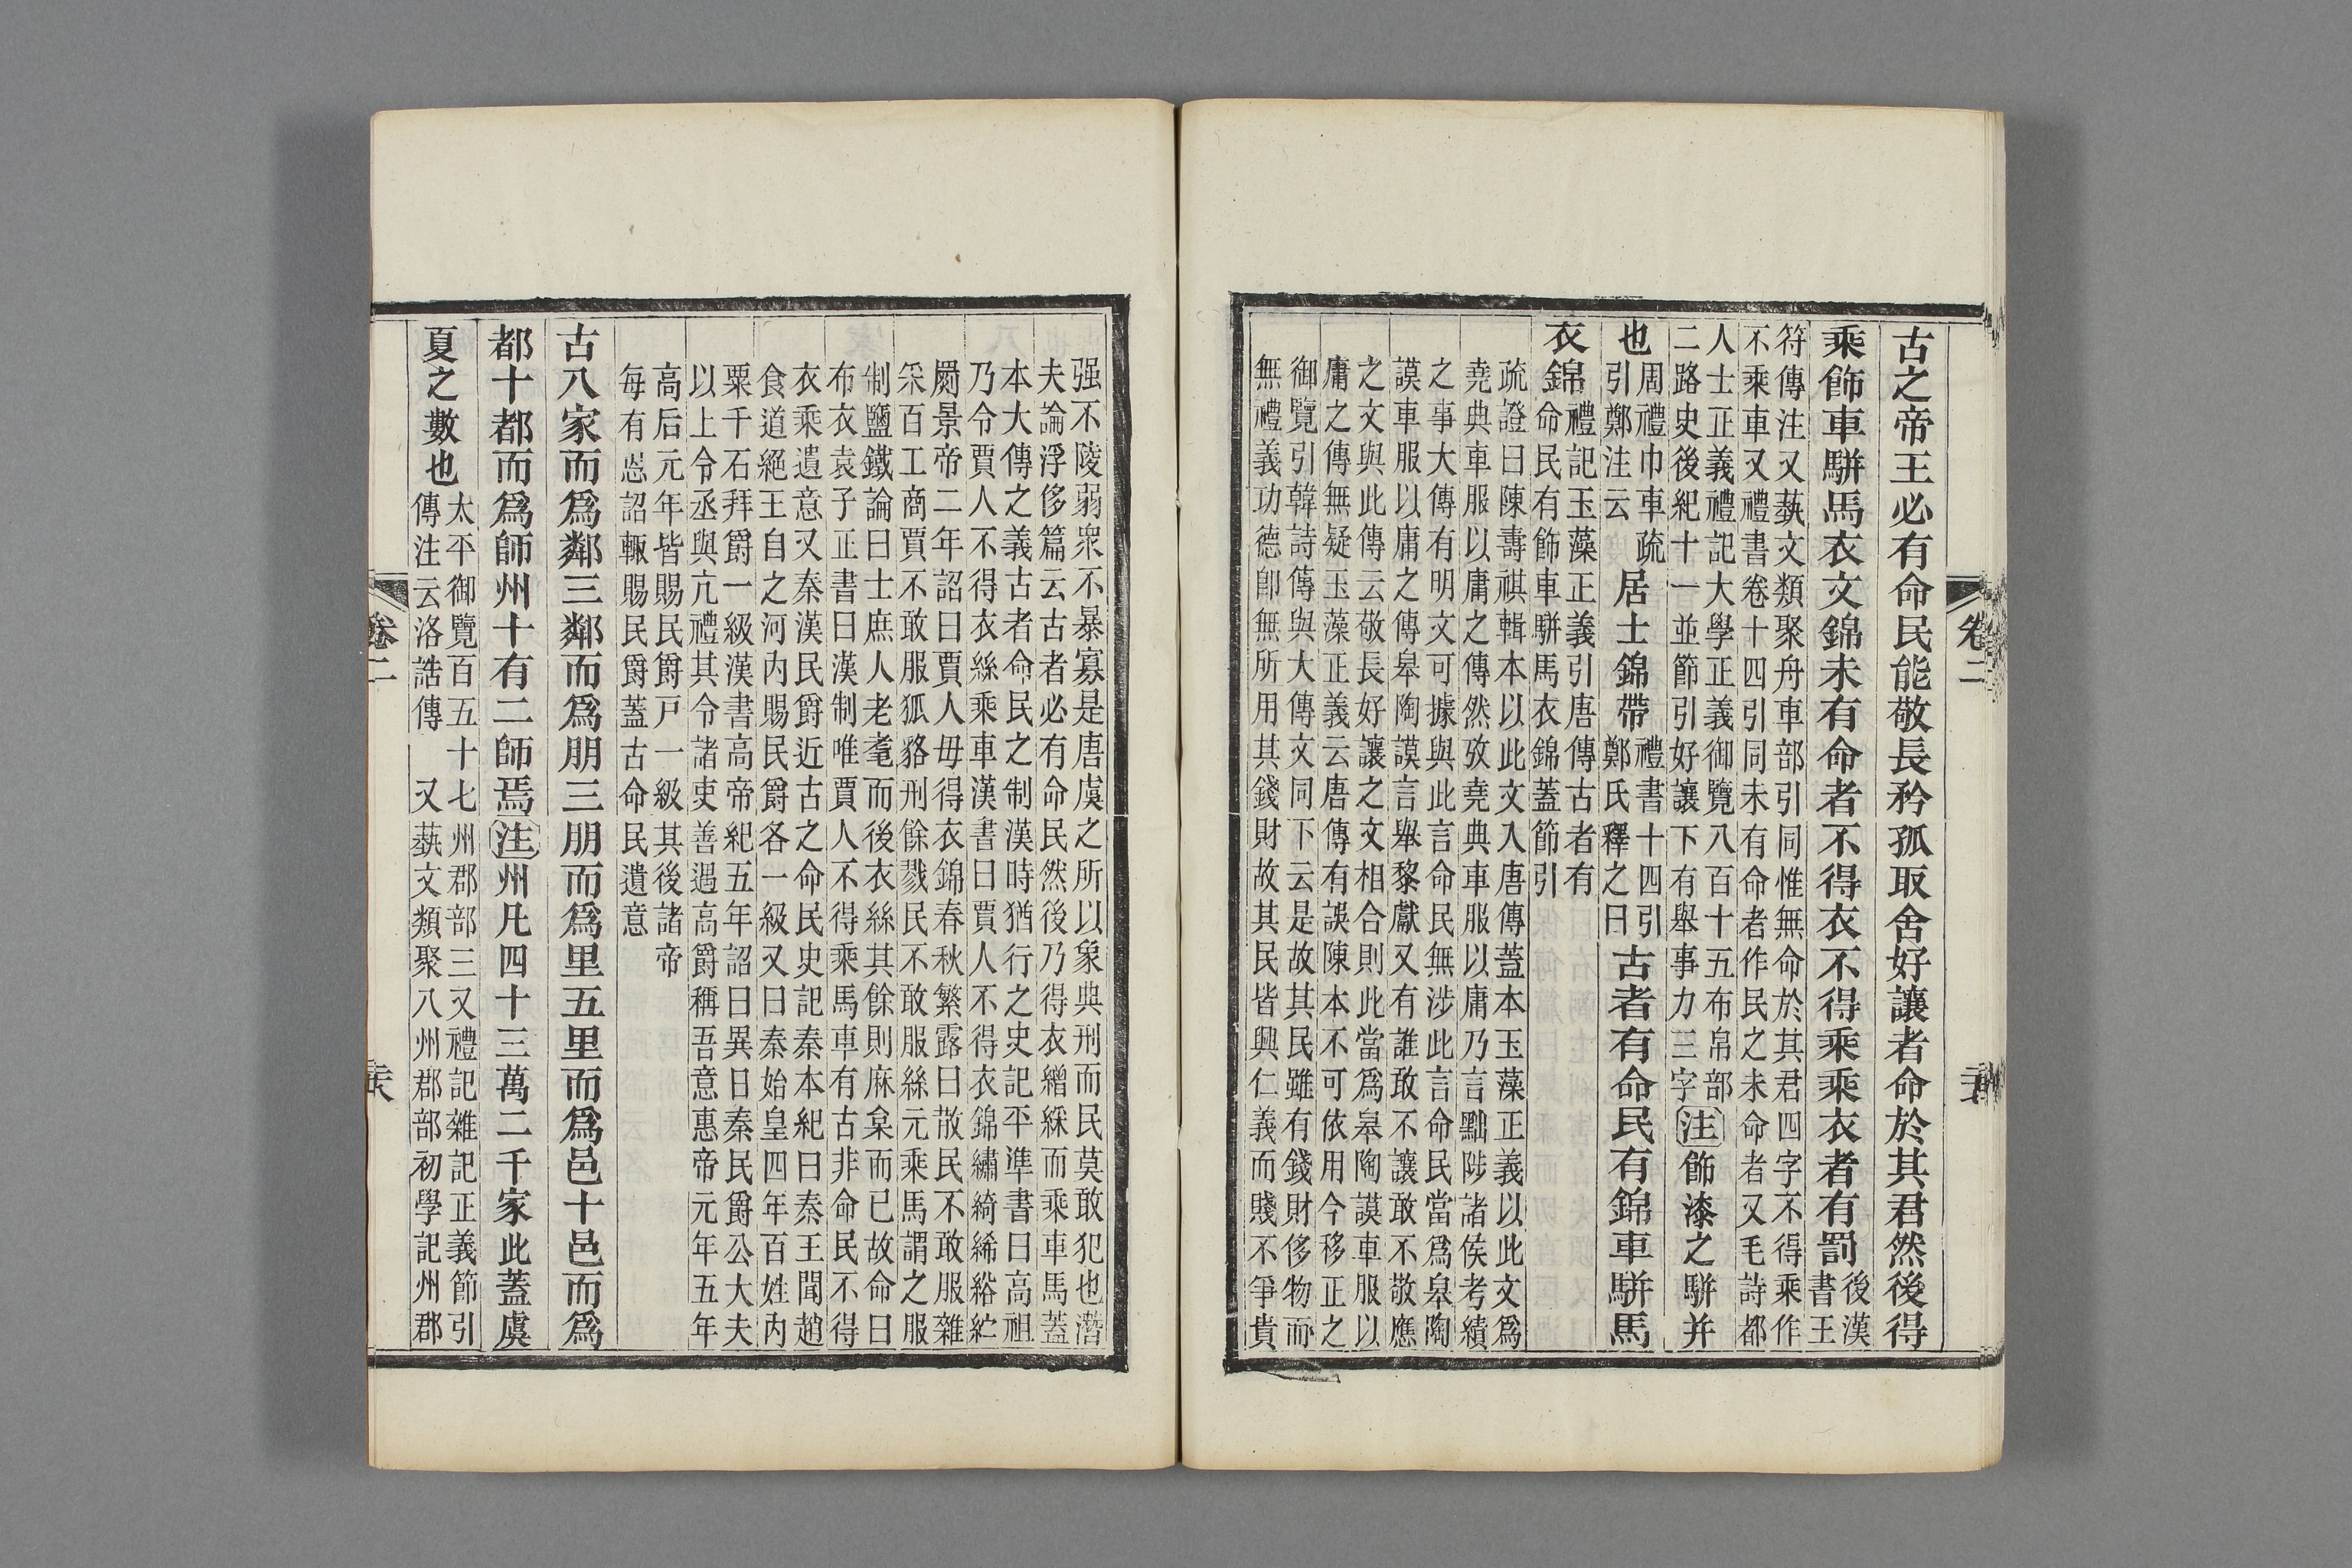 卷二
古之帝王必有命民能敬長矜孤取舍好讓者命於其君然後得
乘飾車駢馬衣文錦未有命者不得衣不得乘乘衣者有罰後漢
書王
符傳注又蓺文類聚舟車部引同惟無命於其君四字不得乘作
不乘車又禮書卷十四引同未有命者作民之未命者又毛詩都
人士正義禮記大學正義御覽八百十五布帛部
二路史後紀十一並節引好讓下有舉事力三字
注飾漆之駢并
也周禮巾車疏
引鄭注云
居士錦帶禮書十四引
鄭氏釋之曰
古者有命民有錦車駢馬
衣錦禮記玉藻正義引唐傳古者有
命民有飾車駢馬衣錦蓋節引
疏證曰陳壽祺輯本以此文入唐傳蓋本玉藻正義以此文爲
堯典車服以庸之傳然攷堯典車服以庸乃言黜陟諸侯考績
之事大傳有明文可據與此言命民無涉此言命民當爲皋陶
謨車服以庸之傳皋陶謨言舉黎獻又有誰敢不讓敢不敬應
之文與此傳云敬長好讓之文相合則此當爲皋陶謨車服以
庸之傳無疑玉藻正義云唐傳有誤陳本不可依用今移正之
御覽引韓詩傳與大傳文同下云是故其民雖有錢財侈物而
無禮義功德卽無所用其錢財故其民皆興仁義而賤不爭貴
强不陵弱衆不暴寡是唐虞之所以象典刑而民莫敢犯也潛
夫論浮侈篇云古者必有命民然後乃得衣繒綵而乘車馬蓋
本大傳之義古者命民之制漢時猶行之史記平準書曰高祖
乃令賈人不得衣絲乘車漢書曰賈人不得衣錦繡綺絺綌紵
罽景帝二年詔曰賈人毋得衣錦春秋繁露曰散民不敢服雜
采百工商賈不敢服狐貉刑餘戮民不敢服絲元乘馬謂之服
制鹽鐵論曰士庶人老耄而後衣絲其餘則麻枲而已故命曰
布衣袁子正書曰漢制唯賈人不得乘馬車有古非命民不得
衣乘遺意又秦漢民爵近古之命民史記秦本紀曰秦王聞趙
食道絕王自之河內賜民爵各一級又曰秦始皇四年百姓內
粟千石拜爵一級漢書高帝紀五年詔曰異日秦民爵公大夫
以上令丞與亢禮其令諸吏善遇高爵稱吾意惠帝元年五年
高后元年皆賜民爵戸一級其後諸帝
每有恩詔輒賜民爵蓋古命民遺意
古八家而爲鄰三鄰而爲朋三朋而爲里五里而爲邑十邑而爲
都十都而爲師州十有二師焉注州凡四十三萬二千家此蓋虞
夏之數也太平御覽百五十七州郡部三又禮記雜記正義節引
傳注云洛誥傳 又蓺文類聚八州郡部初學記州郡
卷二